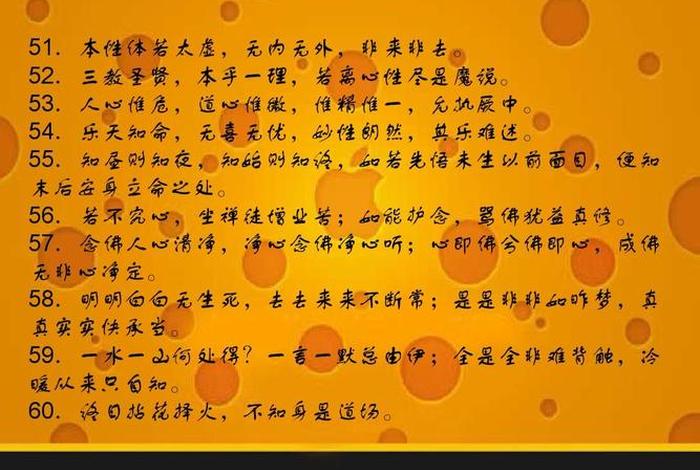 51. 本性体若太虚，无内无外，非来非去。
52. 三教圣贤，本乎一理，若离心性尽是魔说。
53. 人心惟危，道心惟微，惟精惟一，允执厥中。
54. 乐天知命，无喜无忧，妙性朗然，其乐难述。
55. 知昼则知夜，知始则知终，如若先悟未生以前面目，便知
末后安身立命之处。
56. 若不究心，坐禅徒增业苦；如能护念，骂佛犹益真修。
57. 念佛人心清净，净心念佛净心听；心即佛兮佛即心，成佛
无非心净定。
58. 明明白白无生死，去去来来不断常；是是非非如昨梦，真
真实实快承当。
59. 一水一山何处得？一言一默总由伊；全是全非难背触，冷
暖从来只自知。
60. 终日拈花择火，不知身是道场。